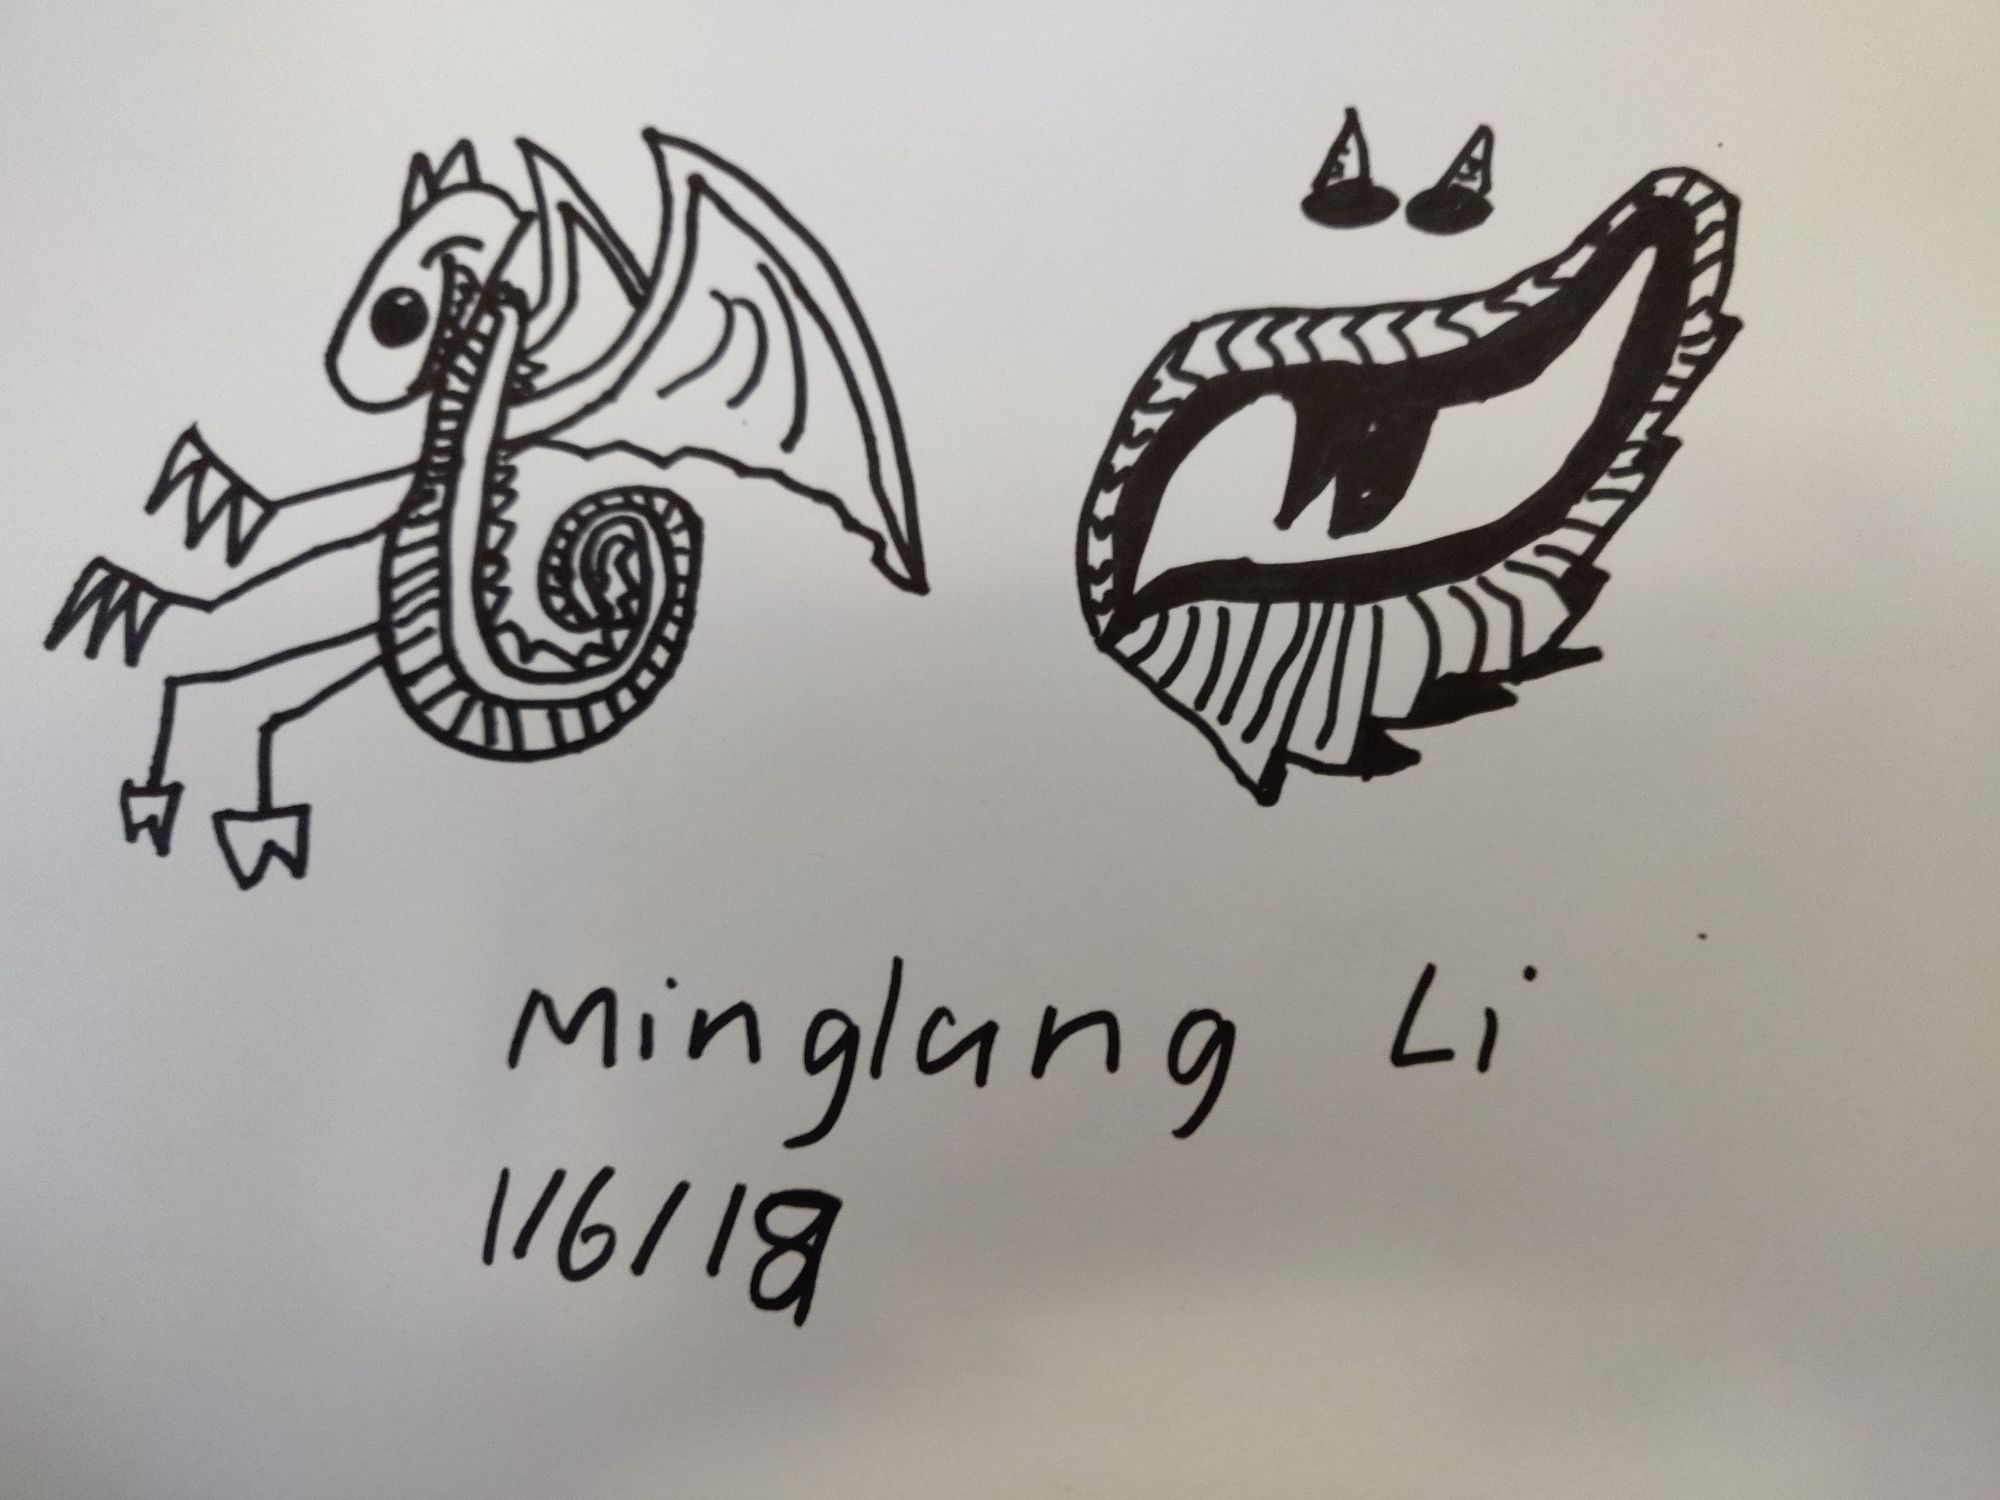 Minglang Li
1/6/18